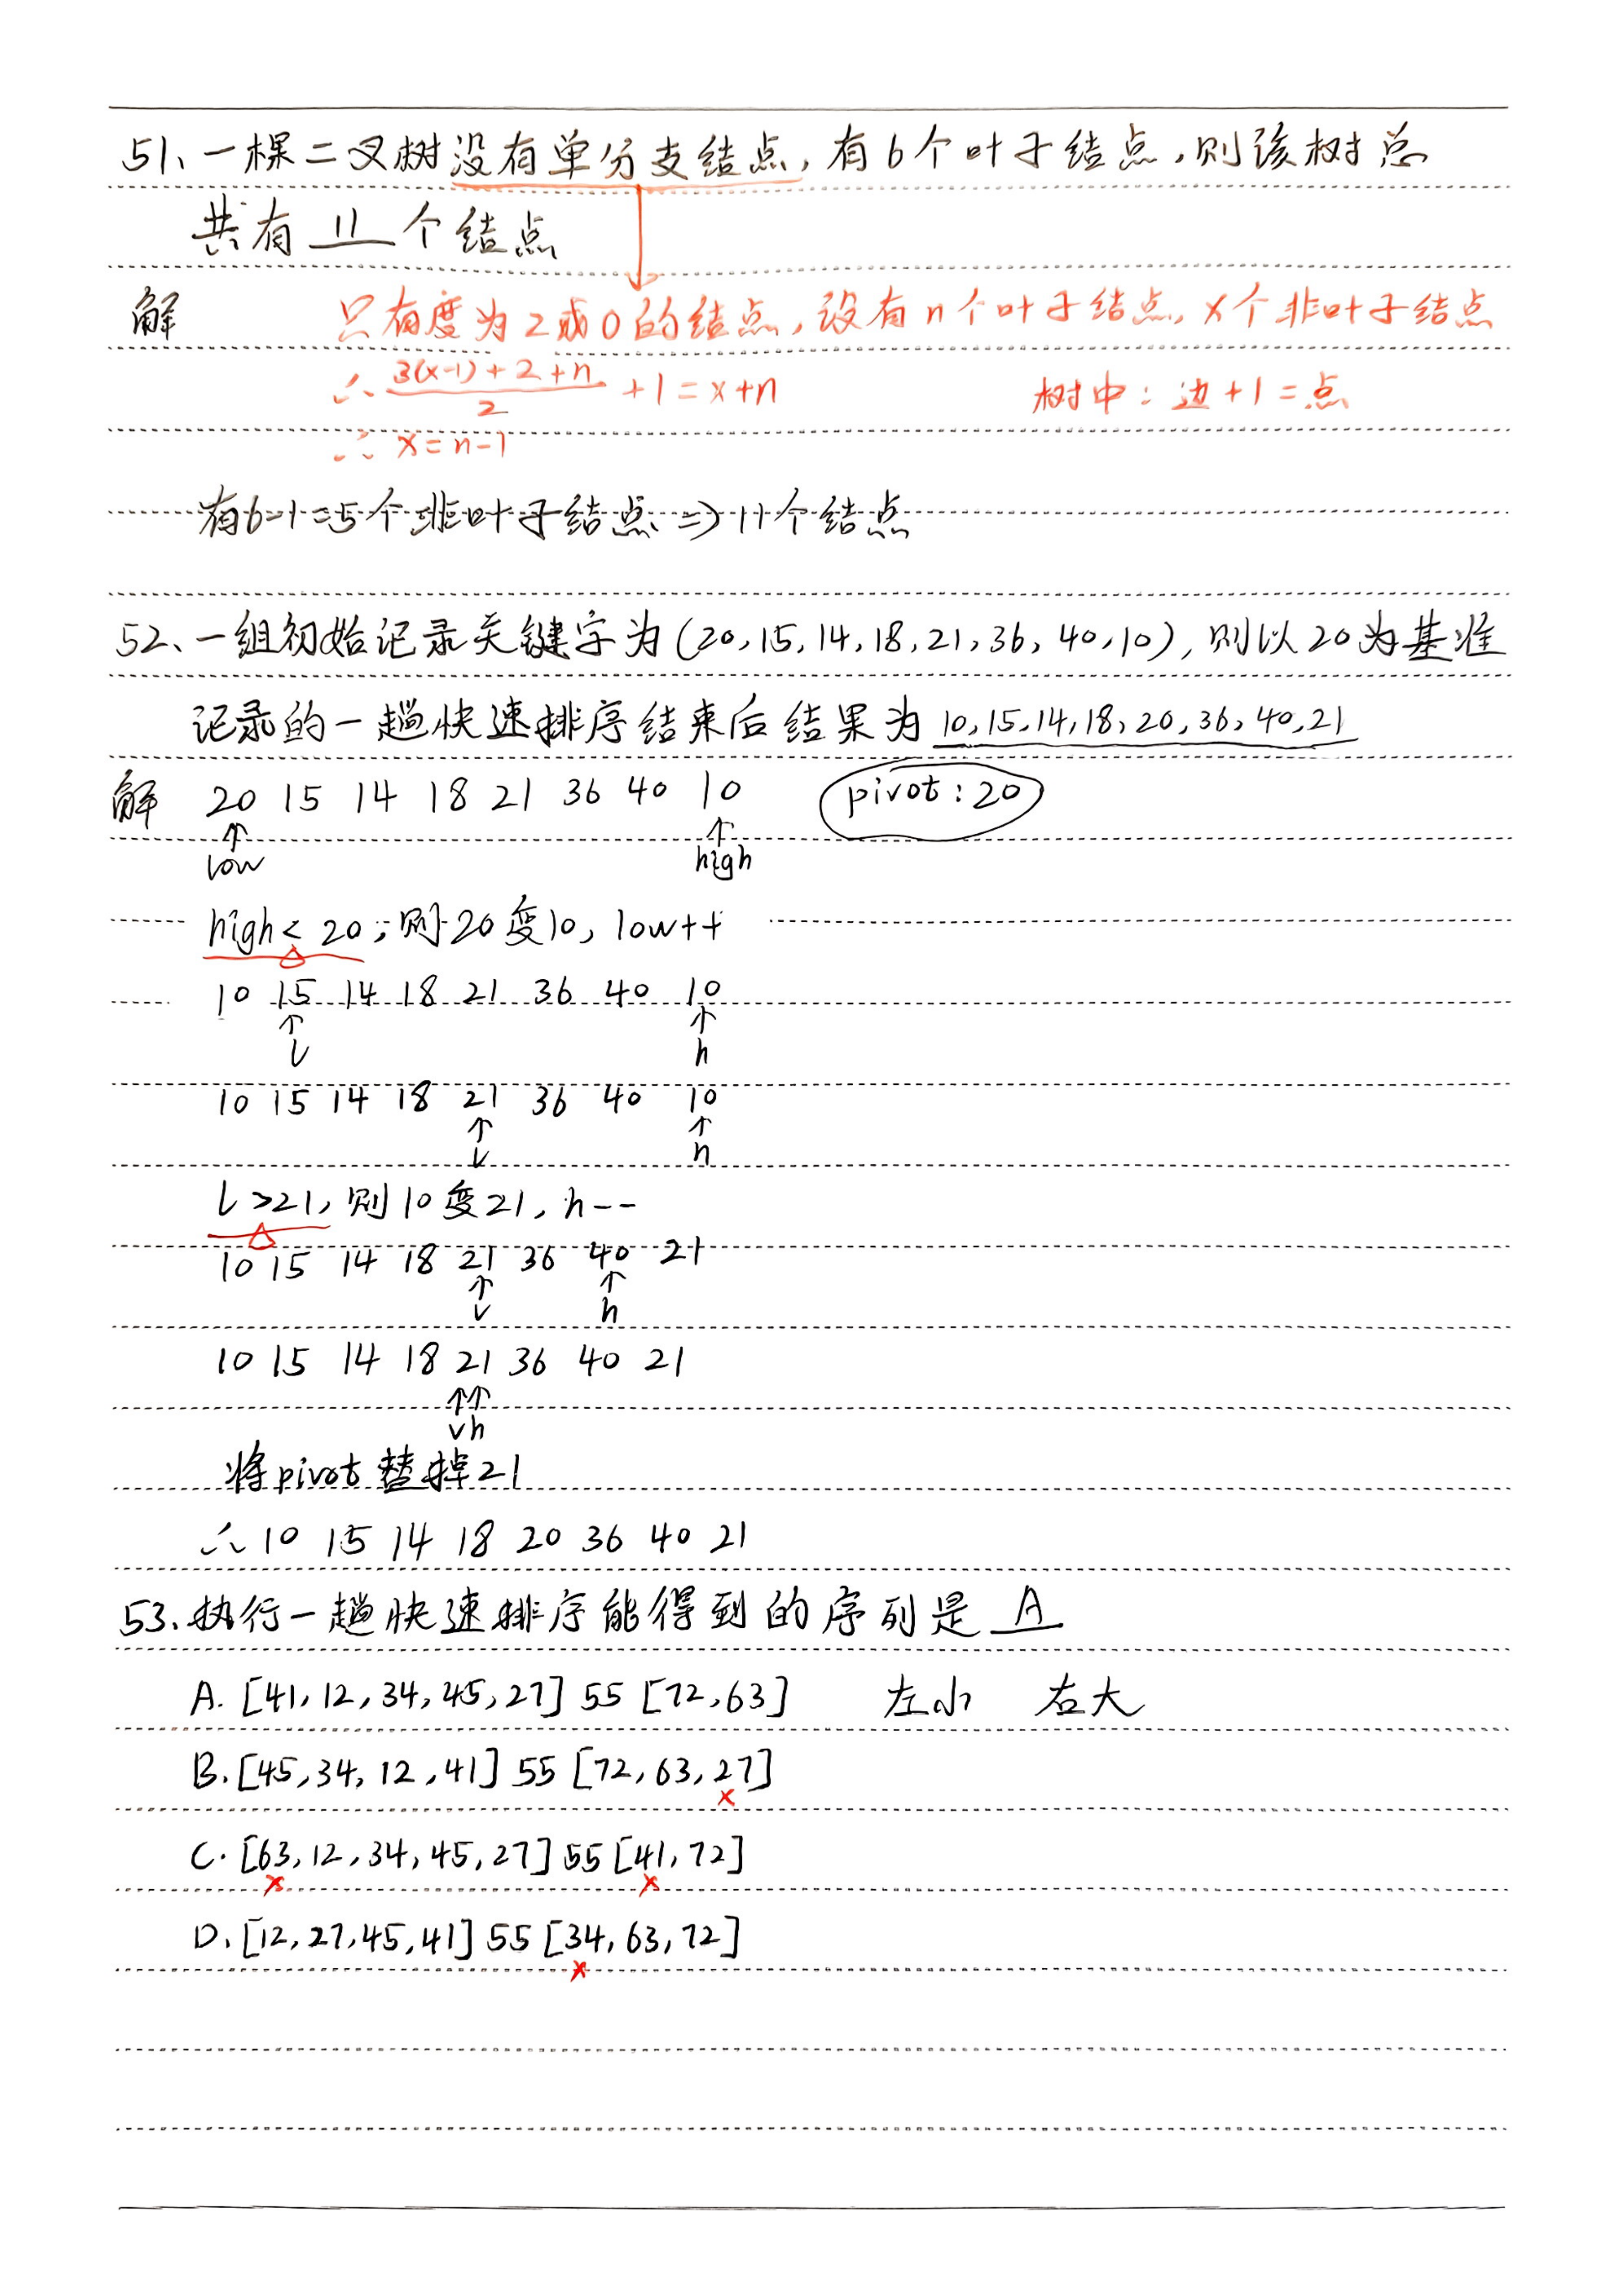 51、一棵二叉树没有单分支结点，有6个叶子结点，则该树总
共有 11 个结点
解 只有度为2或0的结点，设有n个叶子结点，x个非叶子结点
∴ (3(x-1)+2+n)/2 +1=x+n 树中：边+1=点
∴ x=n-1
有6-1=5个非叶子结点 => 11个结点
52、一组初始记录关键字为(20,15,14,18,21,36,40,10)，则以20为基准
记录的一趟快速排序结束后结果为 10,15,14,18,20,36,40,21
解 20 15 14 18 21 36 40 10 pivot:20
↑ ↑
low high
high< 20，则20变10，low++
10 15 14 18 21 36 40 10
↑ ↑
l h
10 15 14 18 21 36 40 10
↑ ↑
l h
l>21，则10变21，h--
10 15 14 18 21 36 40 21
↑ ↑
l h
10 15 14 18 21 36 40 21
↑↑
lh
将pivot替掉21
∴ 10 15 14 18 20 36 40 21
53.执行一趟快速排序能得到的序列是 A
A. [41,12,34,45,27] 55 [72,63] 左小 右大
B. [45,34,12,41] 55 [72,63,27]
×
C. [63,12,34,45,27] 55 [41,72]
× ×
D. [12,27,45,41] 55 [34,63,72]
×